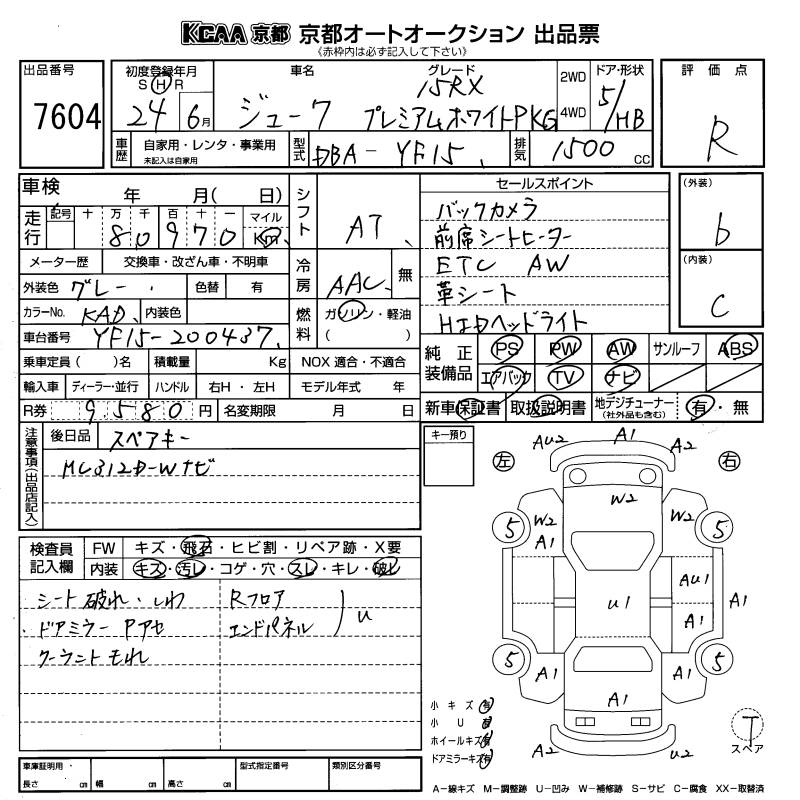 KCAA 京都 京都オートオークション 出品票
《赤枠内は必ず記入して下さい》
出品番号 7604
初度登録年月 S H R 24 6月
車名 ジューク
グレード 15RX プレミアムホワイトPKG
2WD 4WD
ドア・形状 5/HB
評価点 R
車歴 自家用・レンタ・事業用 未記入は自家用
型式 DBA-YF15
排気 1500 CC
車検 年 月( 日)
シフト AT
セールスポイント
バックカメラ
前席シートヒーター
ETC AW
革シート
HIDヘッドライト
(外装) b
(内装) C
走行 記号 十 万 千 百 十 一 マイル Km
80970
メーター歴 交換車・改ざん車・不明車
冷房 AAC 無
外装色 グレー 色替 有
カラーNo. KAD 内装色
燃料 ガソリン・軽油 ( )
車台番号 YF15-200437
純正装備品 PS PW AW サンルーフ ABS
エアバック TV ナビ
乗車定員( )名 積載量 Kg NOX 適合・不適合
輸入車 ディーラー・並行 ハンドル 右H・左H モデル年式 年
R券 9580円 名変期限 月 日
新車保証書 取扱説明書 地デジチューナー (社外品も含む) 有・無
注意事項(出品店記入)
後日品 スペアキー
MC312D-Wナビ
キー預り
検査員記入欄
FW キズ・飛石・ヒビ割・リペア跡・X要
内装 キズ・汚レ・コゲ・穴・スレ・キレ・破レ
シート破れ・しわ Rフロア
ドアミラー Pアセ エンドパネル U
クーラントモれ
左 右
AU2 A1 A2
W2
5 W2 A1 W2 5
AU1
U1 A1
A1
5 A1 A1 5
A1
A2 U2
小キズ 有
小U 有
ホイールキズ 有
ドアミラーキズ 有
T スペア
車庫証明用・ 長さ cm 幅 cm 高さ cm
型式指定番号 類別区分番号
A-線キズ M-調整跡 U-凹み W-補修跡 S-サビ C-腐食 XX-取替済